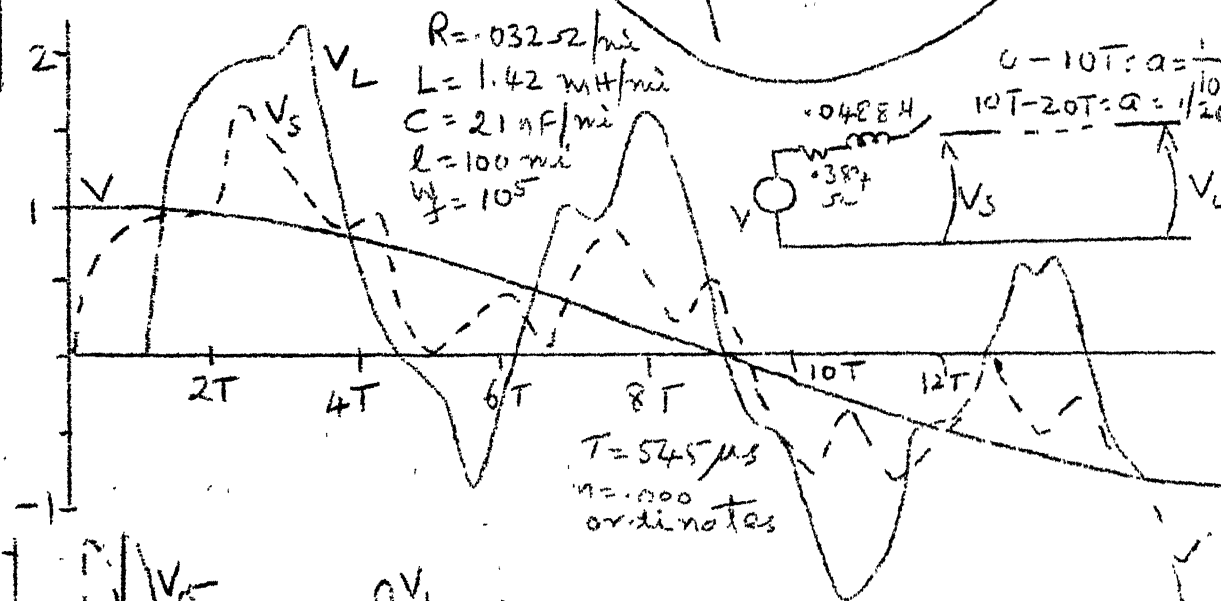 2
V_L
V_S
V
1
-1
R=.032Ω/mi
L=1.42 mH/mi
C=21 nF/mi
l=100 mi
= 10⁵
0-10T: a=1/10
10T-20T: a=1/20
.0488H
.384
Ω
V
V_S
V_L
2T
4T
6T
8T
10T
12T
T=545μs
ordinates
V_S
V_L